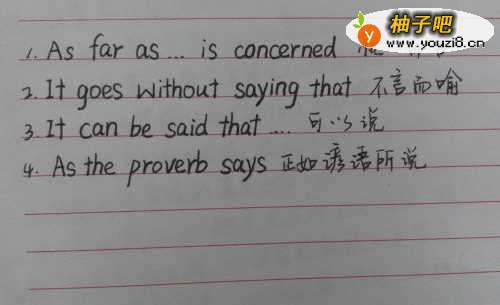 柚子吧
www.youzi8.cn
1. As far as ... is concerned
2. It goes without saying that 不言而喻
3. It can be said that .... 可以说
4. As the proverb says 正如谚语所说